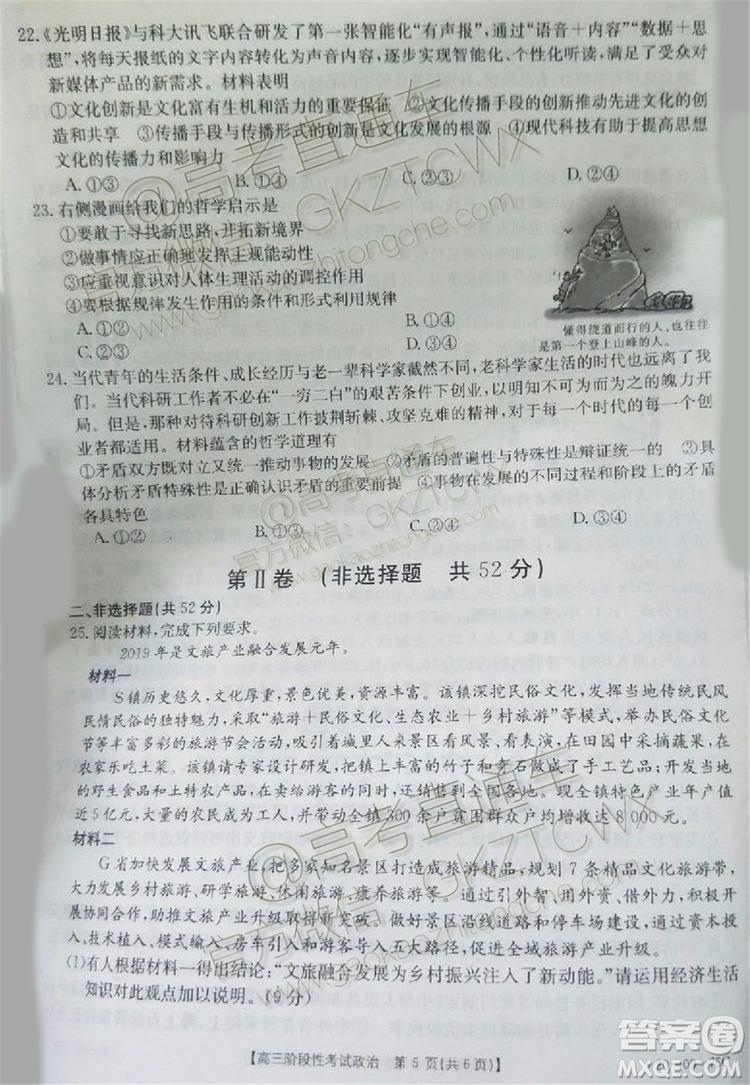 22.《光明日报》与科大讯飞联合研发了第一张智能化“有声报”，通过“语音＋内容”“数据＋思
想”，将每天报纸的文字内容转化为声音内容，逐步实现智能化、个性化听读，满足了受众对
新媒体产品的新需求。材料表明
①文化创新是文化富有生机和活力的重要保证　②文化传播手段的创新推动先进文化的创
造和共享　③传播手段与传播形式的创新是文化发展的根源　④现代科技有助于提高思想
文化的传播力和影响力
A.①③　B.①④　C.②③　D.②④
23.右侧漫画给我们的哲学启示是
①要敢于寻找新思路，开拓新境界
②做事情应正确地发挥主观能动性
③应重视意识对人体生理活动的调控作用
④要根据规律发生作用的条件和形式利用规律
A.①②　B.①④
C.②③　D.③④
懂得绕道而行的人，也往往
是第一个登上山峰的人。
24.当代青年的生活条件、成长经历与老一辈科学家截然不同，老科学家生活的时代也远离
我们而去。当代科研工作者不必在“一穷二白”的艰苦条件下创业，更不会有生命的威胁。
但是，那种对待科研创新工作披荆斩棘、攻坚克难的精神，对于今天的我们依然是有魄力的创
业者都适用。材料蕴含的哲学道理有
①矛盾双方既对立又统一推动事物的发展　②矛盾的普遍性与特殊性是辩证统一的　③具
体分析矛盾特殊性是正确认识矛盾的重要前提　④事物在发展的不同过程和不同阶段上矛盾
各具特色
A.①②　B.①③　C.②④　D.③④
第Ⅱ卷　(非选择题　共 52 分)
二、非选择题(共 52 分)
25.阅读材料，完成下列要求。
2019 年是文旅产业融合发展元年。
材料一
S镇历史悠久，文化厚重，景色优美，资源丰富。该镇深挖民俗文化，发挥当地传统民风
民情民俗的独特魅力，采取“旅游＋民俗文化、生态农业＋乡村旅游”等模式，举办民俗文
化节等丰富多彩的旅游节会活动，吸引着城里人来景区看风景、看变化，在田园中采摘蔬果，在
农家乐吃土菜。该镇请专家设计研发，把镇上丰富的竹子和奇石做成了手工艺品，把当地
的野生食品和菜做成了美食，丰富了游客旅游生活的同时，还销售到全国各地。现全镇旅游年产值
近 5 亿元，大量的农民成为工人，并带动全镇 300 余户贫困群众户均增收达 8 000 元。
材料二
G省加快发展文旅产业，把多家知名景区打造成旅游精品，规划 7 条精品文化旅游带，
大力发展乡村旅游、研学旅游、休闲旅游、康养旅游等新业态。通过引外智、用外资、借外力，
推动文旅产业升级取得突破性进展。做好景区沿线道路和停车场建设，走出了资本引
入、技术植入、模式输入、房车引入和游客导入五大路径，促进全域旅游产业升级。
(1)有人根据材料一得出结论：“文旅融合发展为乡村振兴注入了新动能。”请运用经济生活
知识对此观点加以说明。(9 分)
【高三阶段性考试政治　第 5 页(共 6 页)】
@高考直通车
官方微信：GKZTCWX
www.gaokaozhitongche.com
答案圈